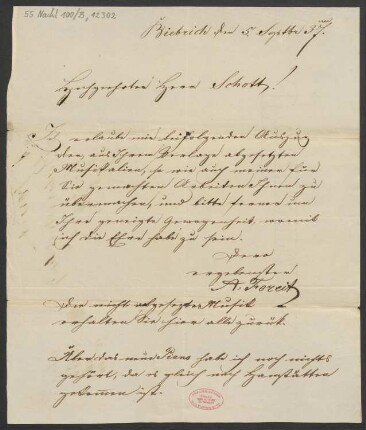 55 Nachl 100/B, 12302
Biebrich den 5 Septbr 37.
Hochgeehrter Herr Schott!
Ich erlaube mir beifolgenden Auszug
der aus Ihrem Verlage abgesetzten
Musikalien, so wie auch meiner für
Sie gemachten Arbeiten Ihnen zu
übermachen, und bitte ferner um
Ihre geneigte Gewogenheit, womit
ich die Ehre habe zu sein.
Dero
ergebenster
A. Foreit
Die nicht abgesetzte Musik
erhalten Sie hier alle zurück.
Über das neue Piano hab ich noch nichts
gehört, da es gleich nach Hanstätten
gekommen ist.